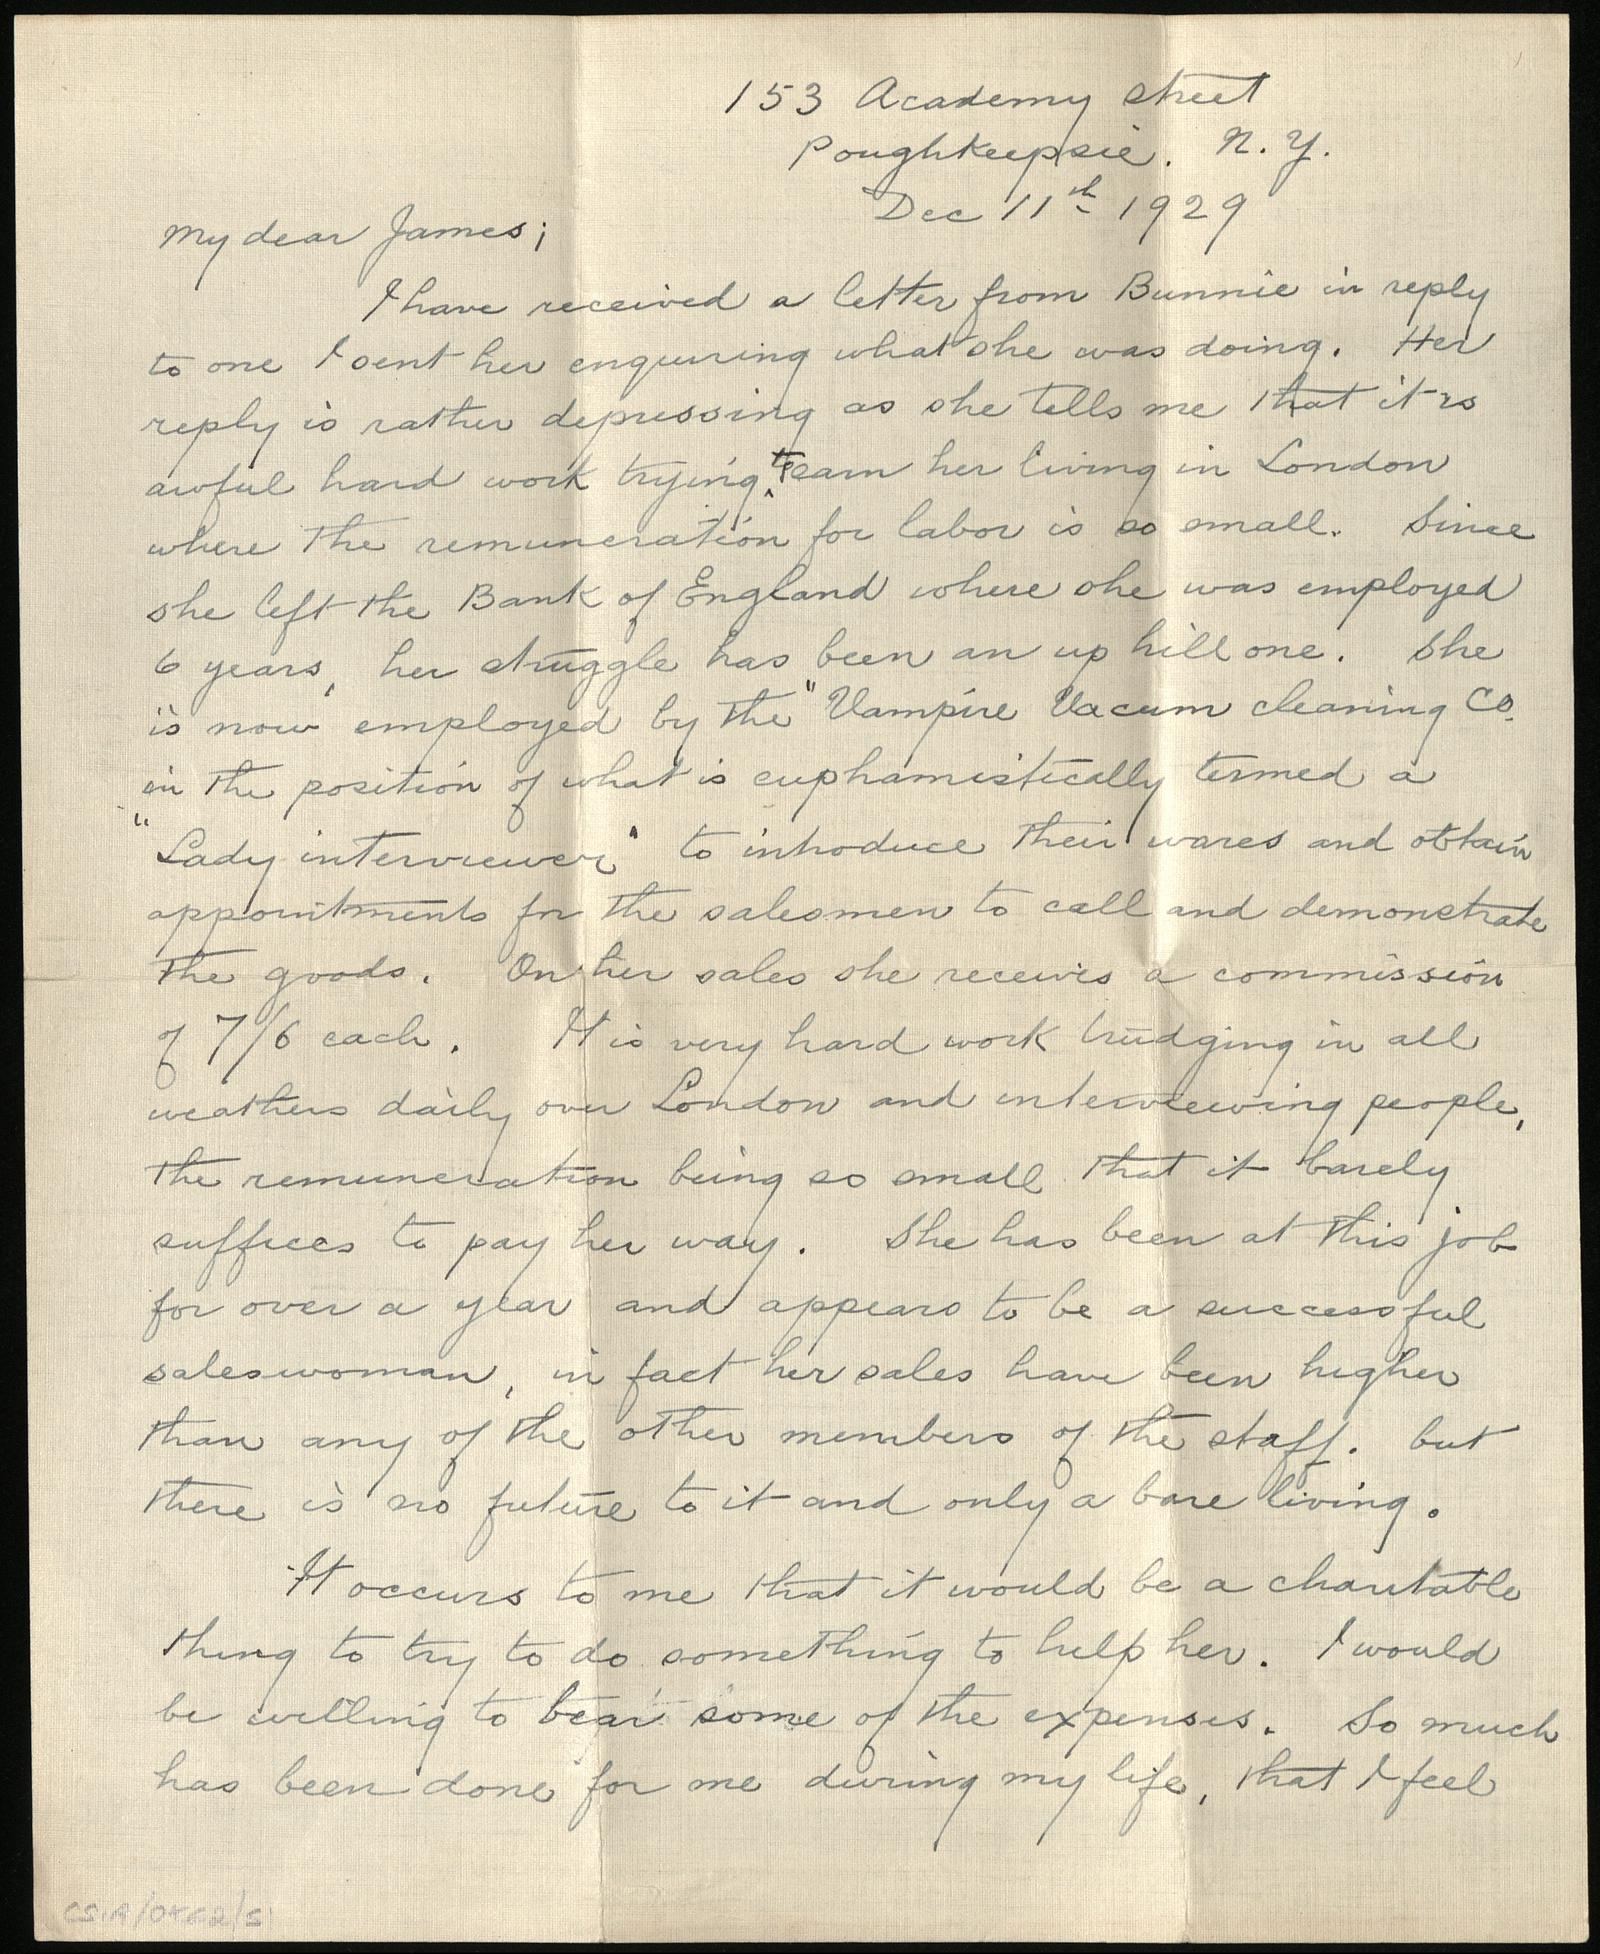 153 Academy street
Poughkeepsie. N.Y.
Dec 11th 1929
My dear James;
I have received a letter from Bunnie in reply
to one I sent her enquiring what she was doing. Her
reply is rather depressing as she tells me that it is
awful hard work trying to earn her living in London
where the remuneration for labor is so small. Since
she left the Bank of England where she was employed
6 years, her struggle has been an up hill one. She
is now employed by the "Vampire Vacum cleaning Co.
in the position of what is euphamistically termed a
"Lady interviewer" to introduce their wares and obtain
appointments for the salesmen to call and demonstrate
the goods. On her sales she receives a commission
of 7/6 each. It is very hard work trudging in all
weathers daily over London and interviewing people,
the remuneration being so small that it barely
suffices to pay her way. She has been at this job
for over a year and appears to be a successful
saleswoman, in fact her sales have been higher
than any of the other members of the staff. but
there is no future to it and only a bare living.
It occurs to me that it would be a charitable
thing to try to do something to help her. I would
be willing to bear some of the expenses. So much
has been done for me during my life, that I feel